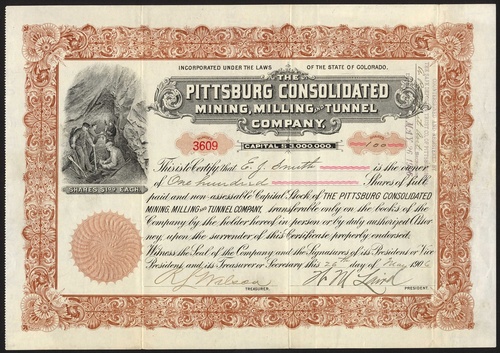 INCORPORATED UNDER THE LAWS OF THE STATE OF COLORADO.
THE
PITTSBURG CONSOLIDATED
MINING, MILLING, AND TUNNEL
COMPANY.
3609
CAPITAL $3,000,000
100
SHARES $1.00 EACH.
This is to Certify that E. J. Smith is the owner
of One hundred Shares of full
paid and non-assessable Capital Stock of THE PITTSBURG CONSOLIDATED
MINING, MILLING AND TUNNEL COMPANY, transferable only on the books of the
Company by the holder hereof in person or by duly authorized Attor
ney, upon the surrender of this Certificate properly endorsed.
Witness the Seal of the Company and the Signatures of its President or Vice
President, and its Treasurer or Secretary this day of 190
TREASURER.
PRESIDENT.